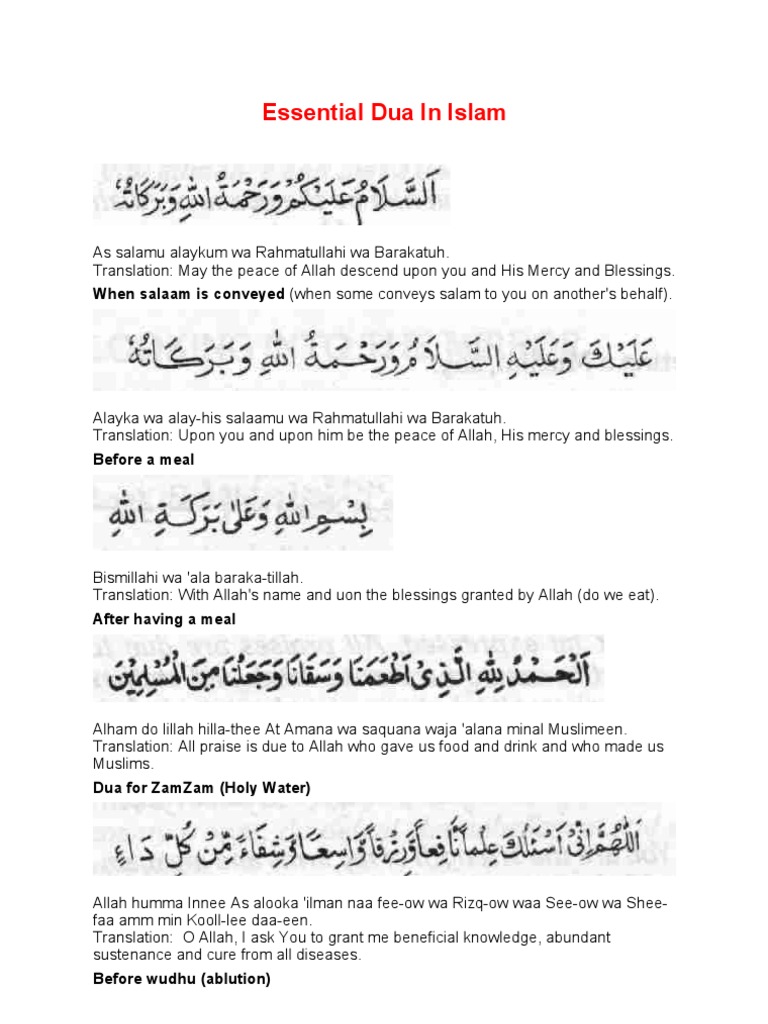 Essential Dua In Islam
اَلسَّلَامُ عَلَيْكُمْ وَرَحْمَةُ اللهِ وَبَرَكَاتُهٗ
As salamu alaykum wa Rahmatullahi wa Barakatuh.
Translation: May the peace of Allah descend upon you and His Mercy and Blessings.
When salaam is conveyed (when some conveys salam to you on another's behalf).
عَلَيْكَ وَعَلَيْهِ السَّلَامُ وَرَحْمَةُ اللهِ وَبَرَكَاتُهٗ
Alayka wa alay-his salaamu wa Rahmatullahi wa Barakatuh.
Translation: Upon you and upon him be the peace of Allah, His mercy and blessings.
Before a meal
بِسْمِ اللهِ وَعَلٰى بَرَكَةِ اللهِ
Bismillahi wa 'ala baraka-tillah.
Translation: With Allah's name and uon the blessings granted by Allah (do we eat).
After having a meal
اَلْحَمْدُ لِلّٰهِ الَّذِىْ اَطْعَمَنَا وَسَقَانَا وَجَعَلَنَا مِنَ الْمُسْلِمِيْنَ
Alham do lillah hilla-thee At Amana wa saquana waja 'alana minal Muslimeen.
Translation: All praise is due to Allah who gave us food and drink and who made us
Muslims.
Dua for ZamZam (Holy Water)
اَللّٰهُمَّ اِنِّىْ اَسْئَلُكَ عِلْمًا نَّافِعًا وَّرِزْقًا وَّاسِعًا وَّشِفَاءً مِّنْ كُلِّ دَاءٍ
Allah humma Innee As alooka 'ilman naa fee-ow wa Rizq-ow waa See-ow wa Shee-
faa amm min Kooll-lee daa-een.
Translation:  O Allah, I ask You to grant me beneficial knowledge, abundant
sustenance and cure from all diseases.
Before wudhu (ablution)